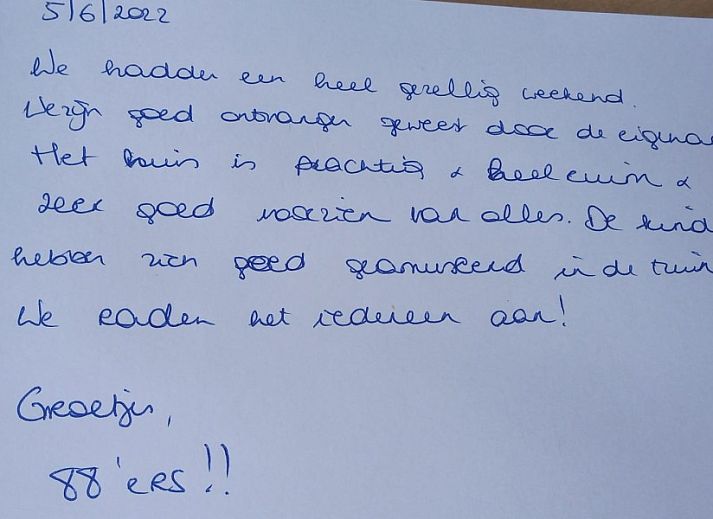 5/6/2022
We hadden een heel gezellig weekend.
We zijn goed ontvangen geweest door de eigena
Het huis is prachtig & heel ruim &
zeer goed voorzien van alles. De kind
hebben zich goed geamuseerd in de tuin
We raden het iedereen aan!
Groetjes,
88'ers!!